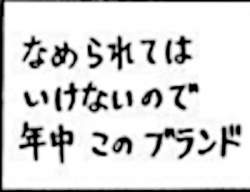 なめられては
いけないので
年中 このブランド